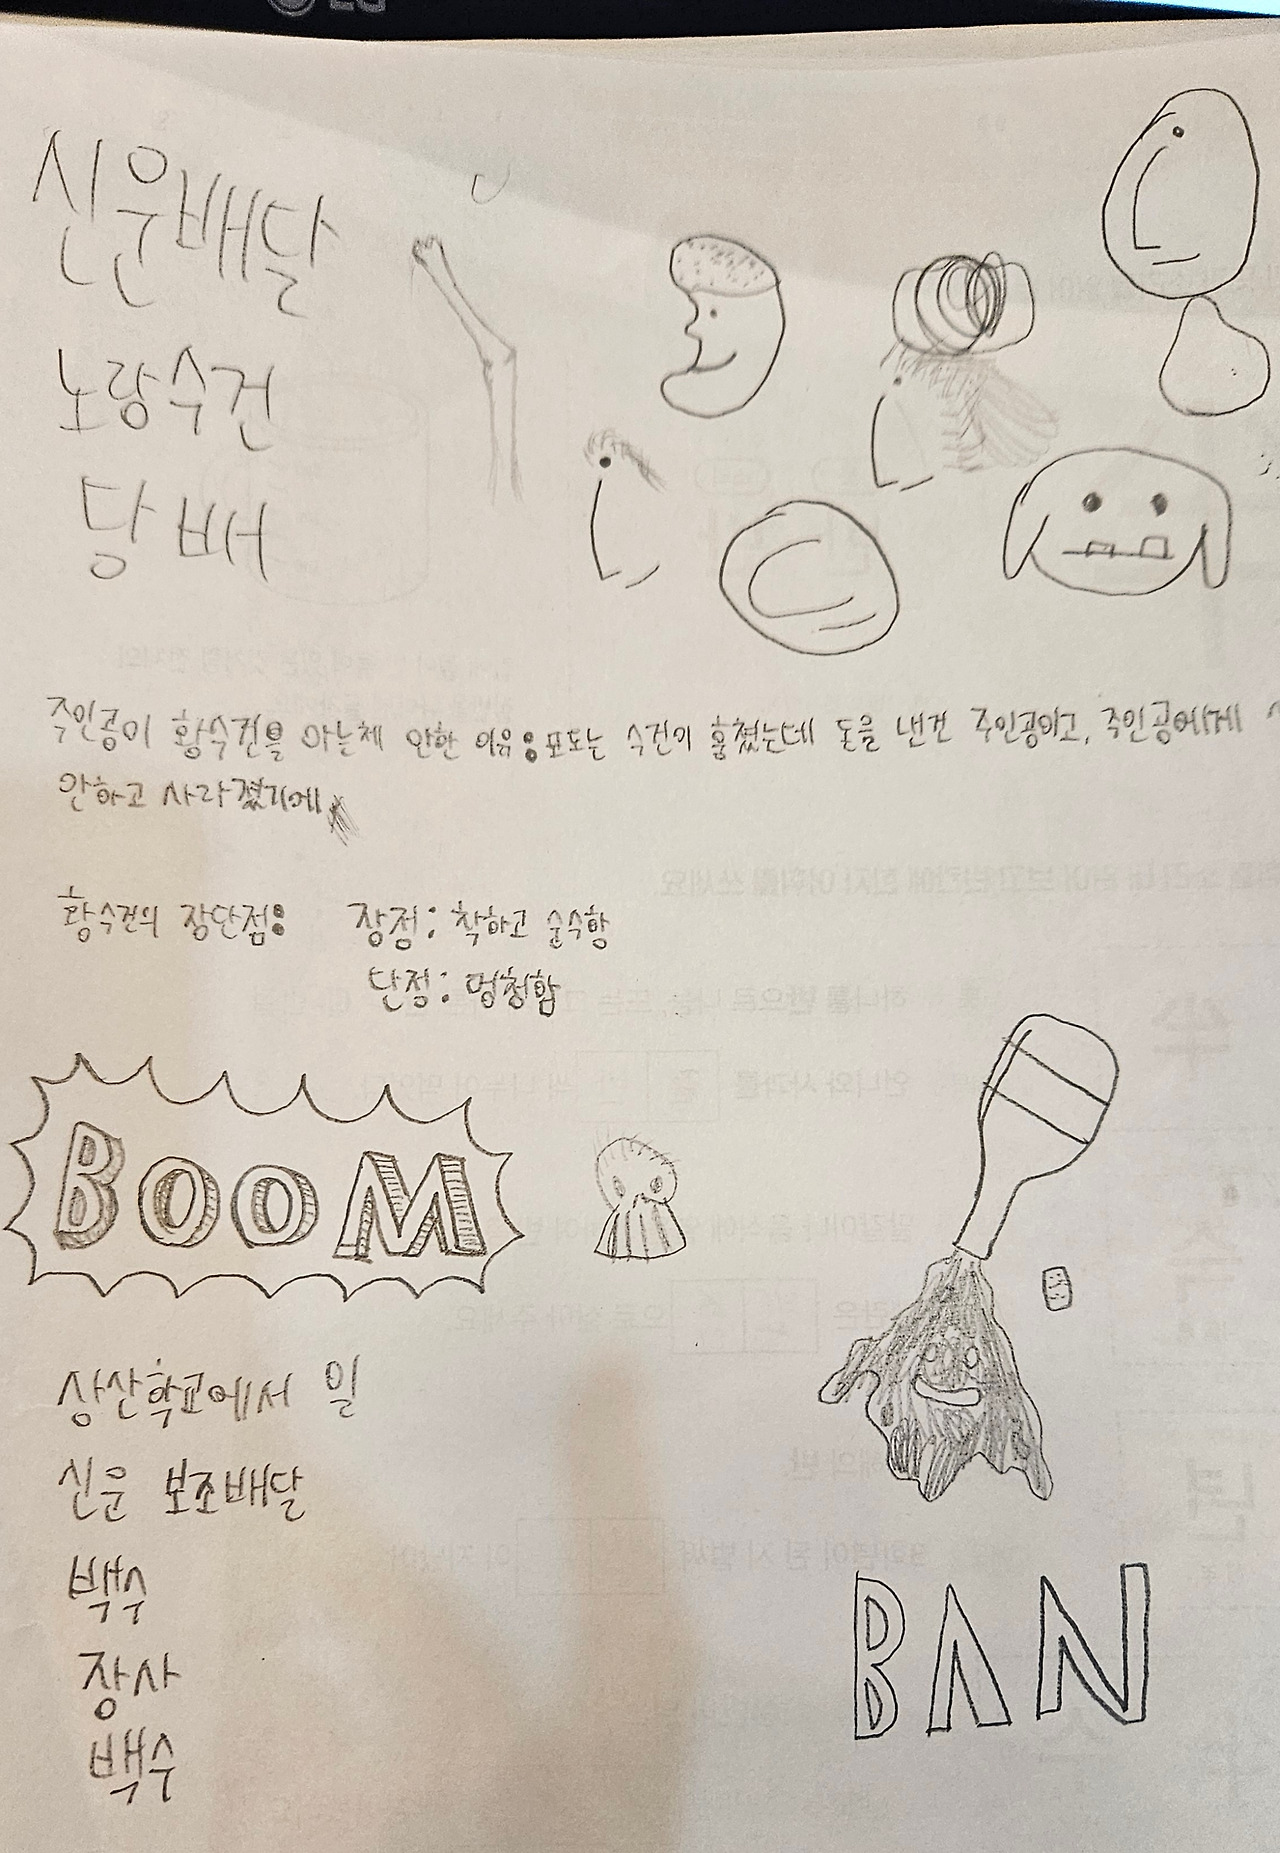 신문배달
노랑수건
담배
주인공이 황수건을 아는체 안한 이유: 포도는 수건이 훔쳤는데 돈을 낸건 주인공이고, 주인공에게
안하고 사라졌기에
황수건의 장단점: 장점: 착하고 순수함
단점: 멍청함
BOOM
삼산학교에서 일
신문 보조배달
백수
장사
백수
BAN